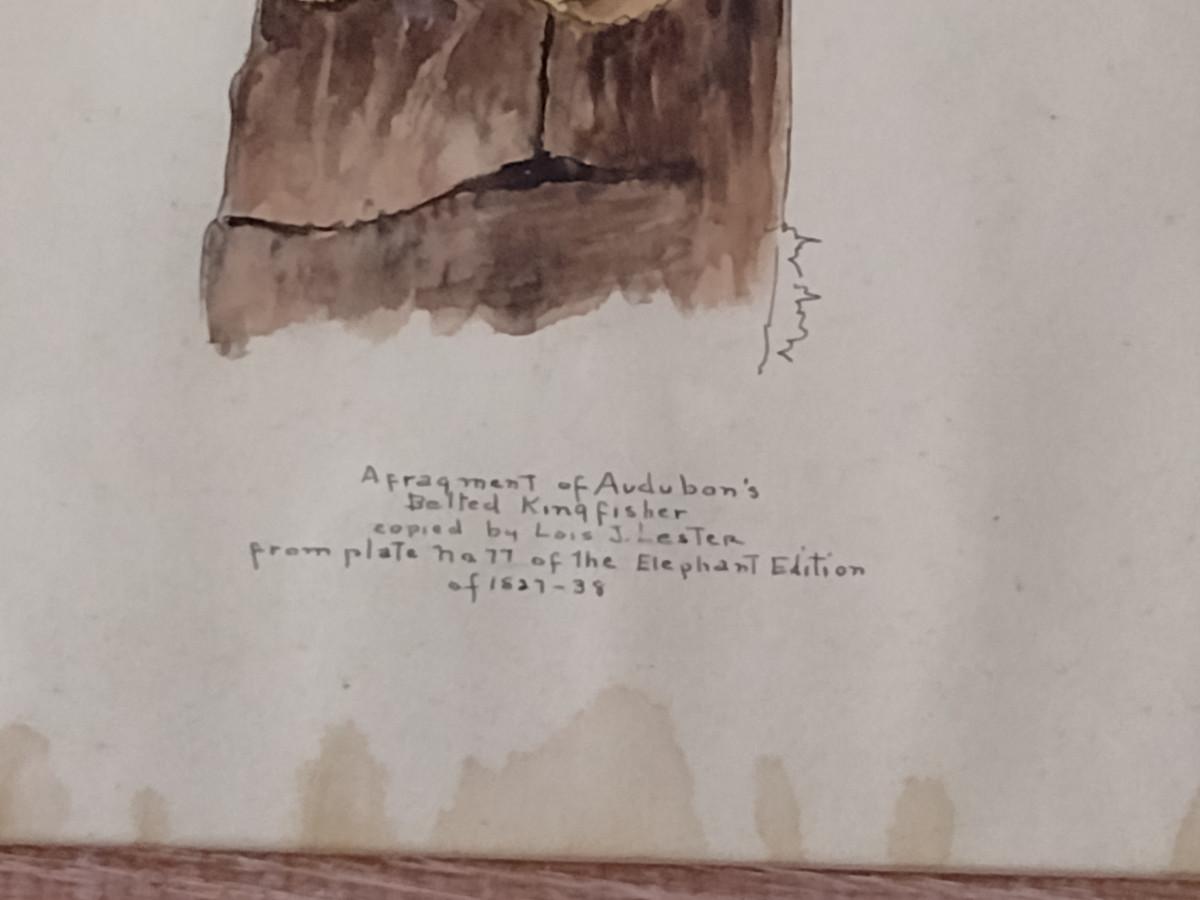 A fragment of Audubon's
Belted Kingfisher
copied by Lois J. Lester
from plate no 77 of the Elephant Edition
of 1827-38